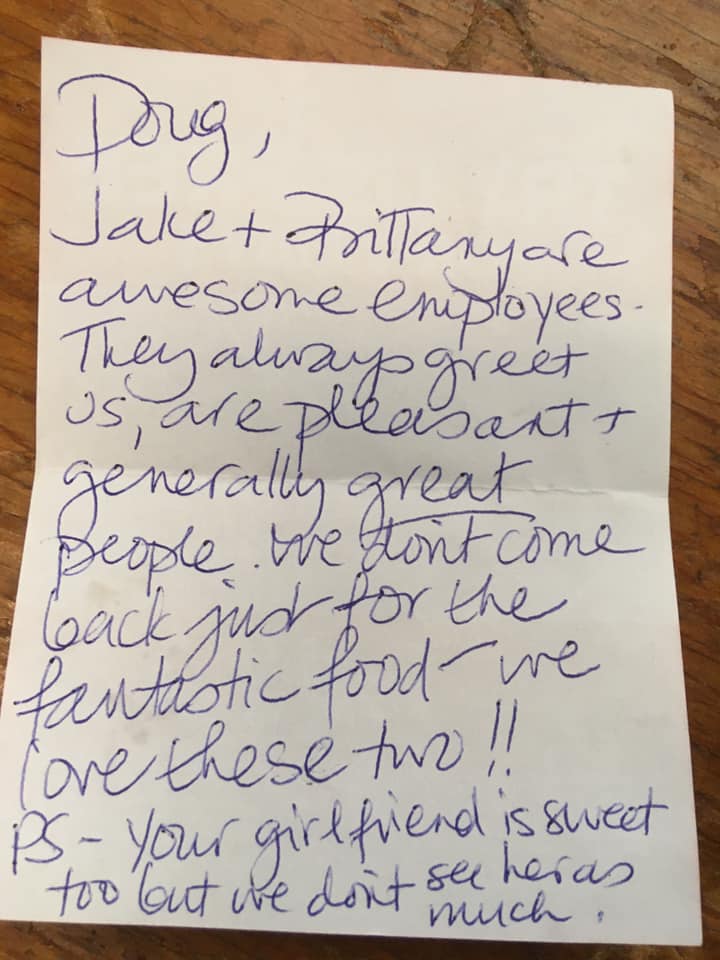 Doug,
Jake + Brittany are
awesome employees.
They always greet
us, are pleasant +
generally great
people. We don't come
back just for the
fantastic food - we
love these two!!
PS - Your girlfriend is sweet
too but we don't see her as
much.